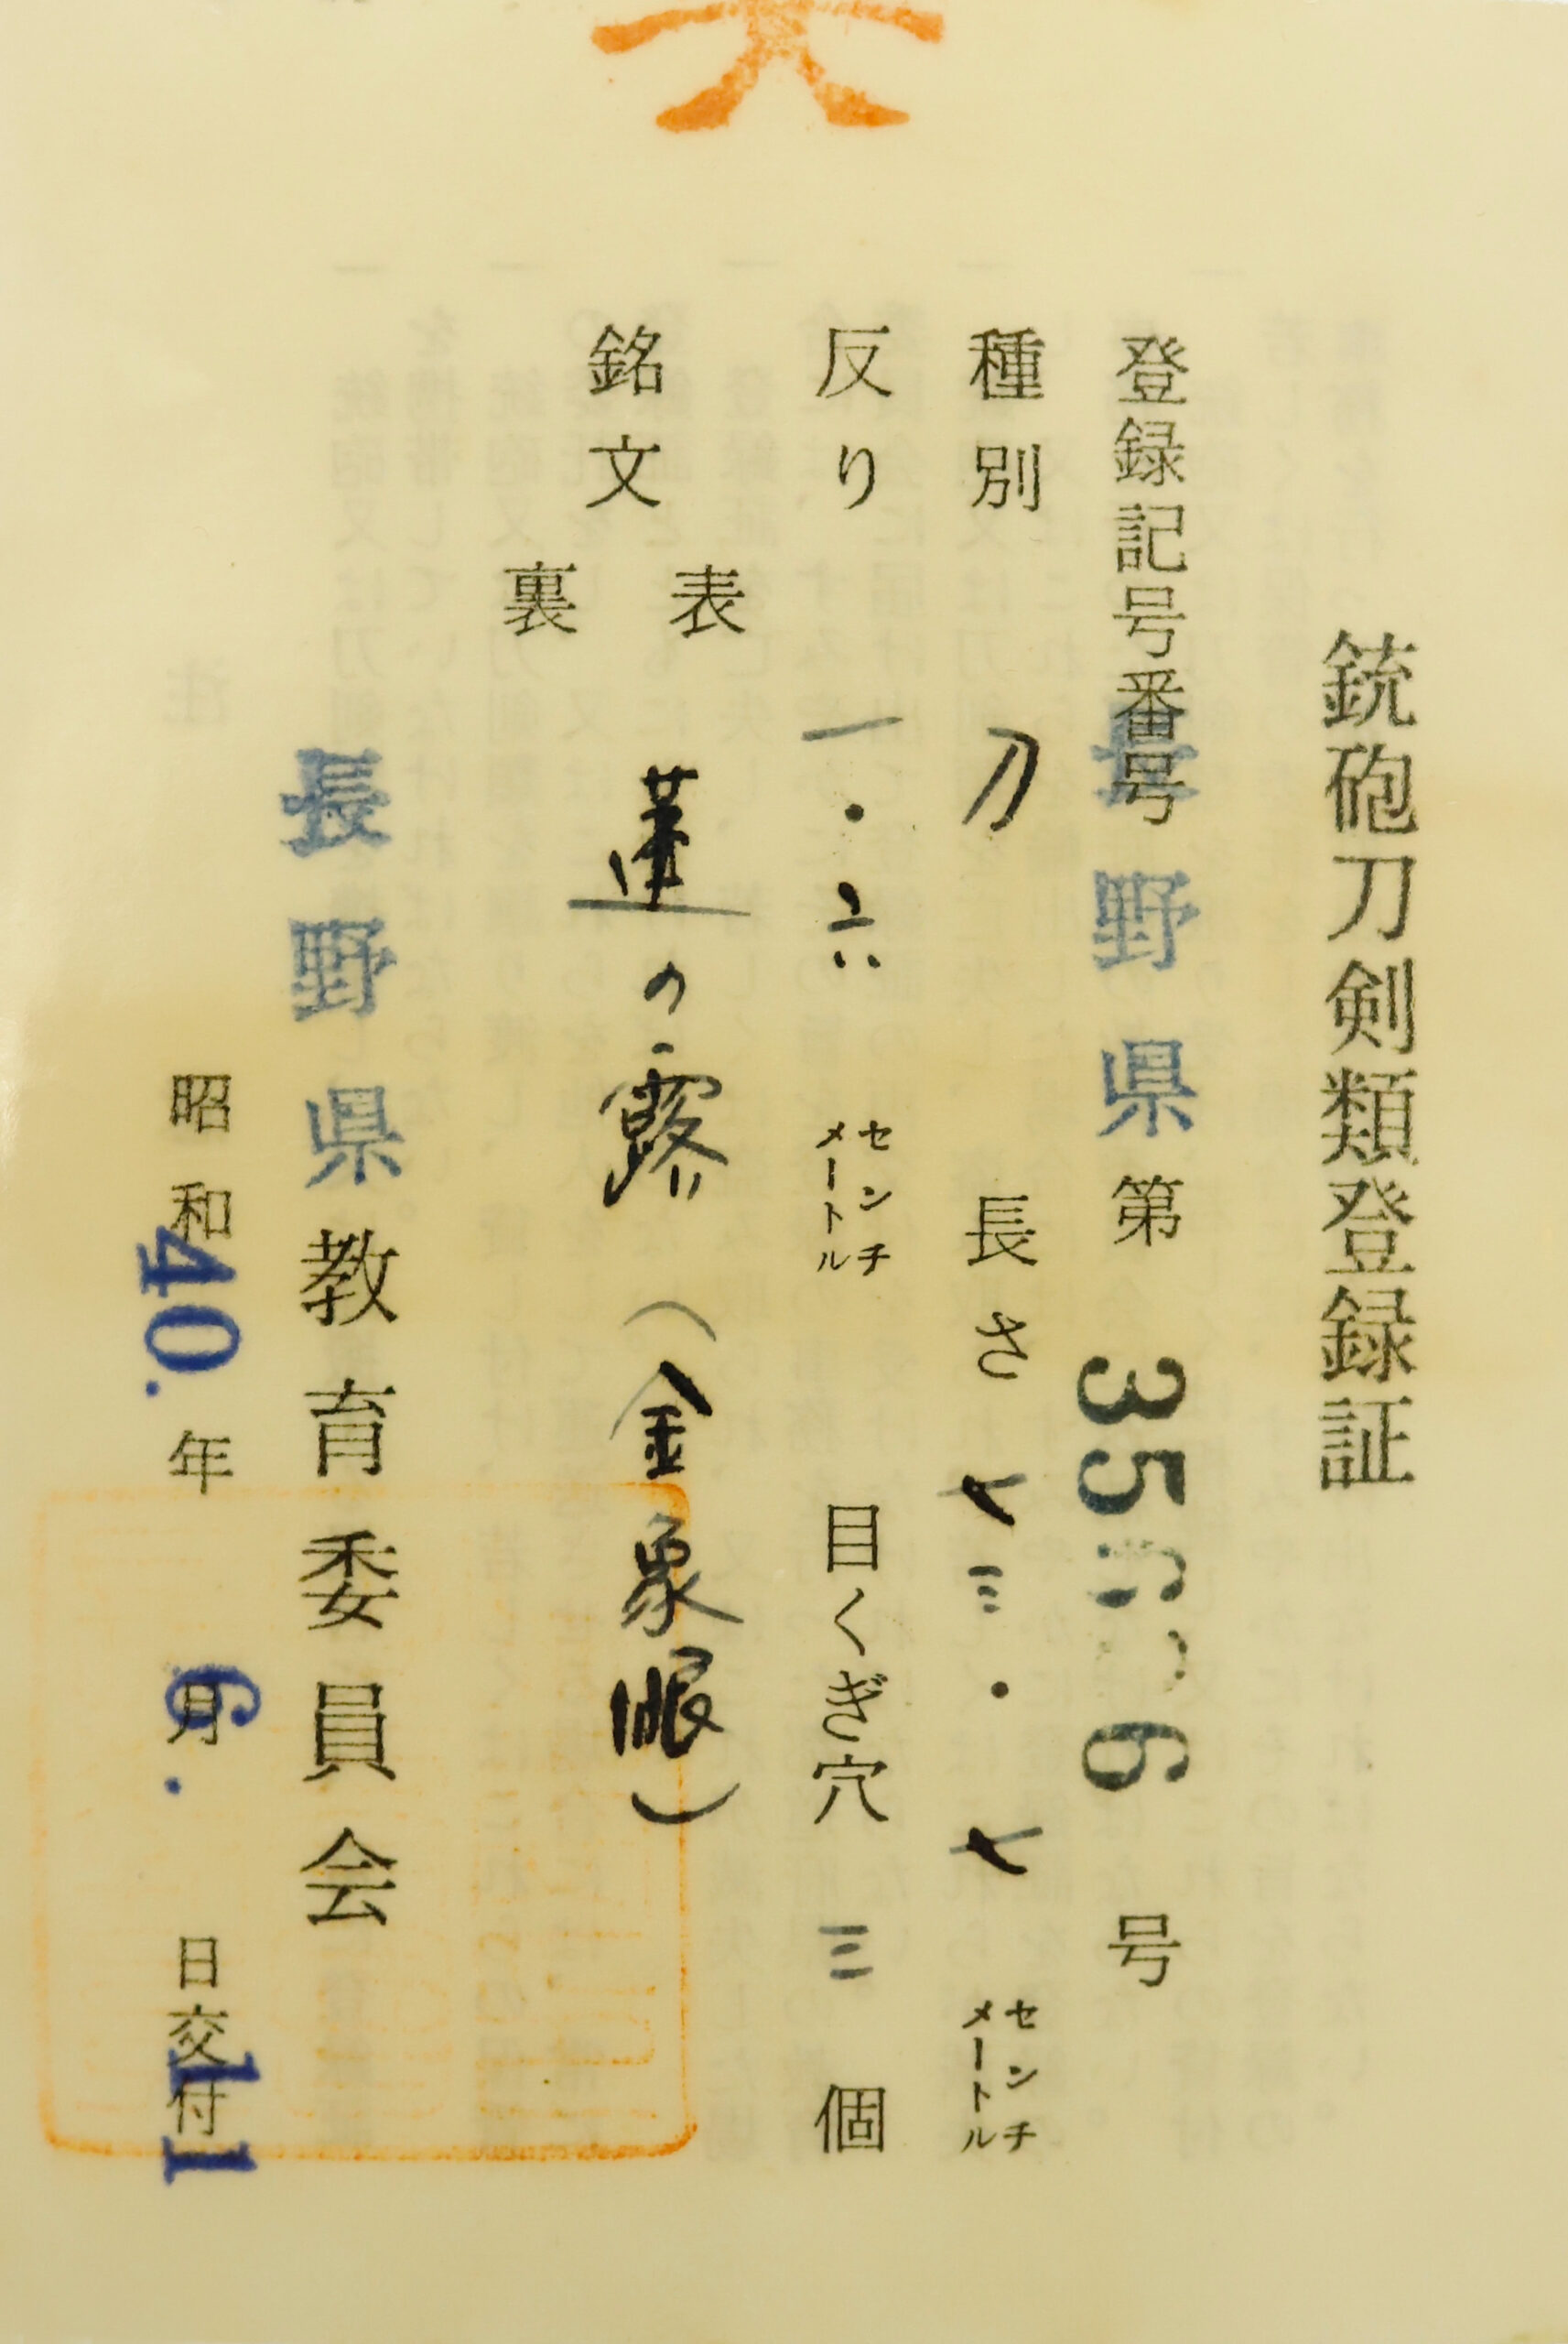 大
銃砲刀剣類登録証
登録記号番号 長野県第 35 6 号
種別 刀 長さ 七三・七 センチメートル
反り 一・六 センチメートル 目くぎ穴 三 個
銘文
表 蓮の露(金象眼)
裏
長野県教育委員会
昭和40.年6.月11日交付